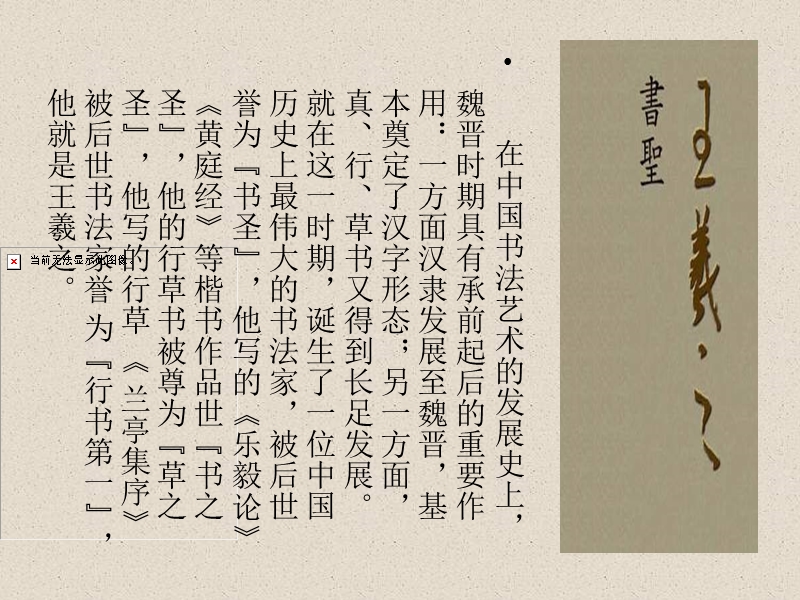 王羲之
書聖
•
在中国书法艺术的发展史上，
魏晋时期具有承前起后的重要作
用：一方面汉隶发展至魏晋，基
本奠定了汉字形态；另一方面，
真、行、草书又得到长足发展。
就在这一时期，诞生了一位中国
历史上最伟大的书法家，被后世
誉为『书圣』，他写的《乐毅论》
《黄庭经》等楷书作品世『书之
圣』，他的行草书被尊为『草之
圣』，他写的行草《兰亭集序》
被后世书法家誉为『行书第一』，
他就是王羲之。
当前无法显示此图像。